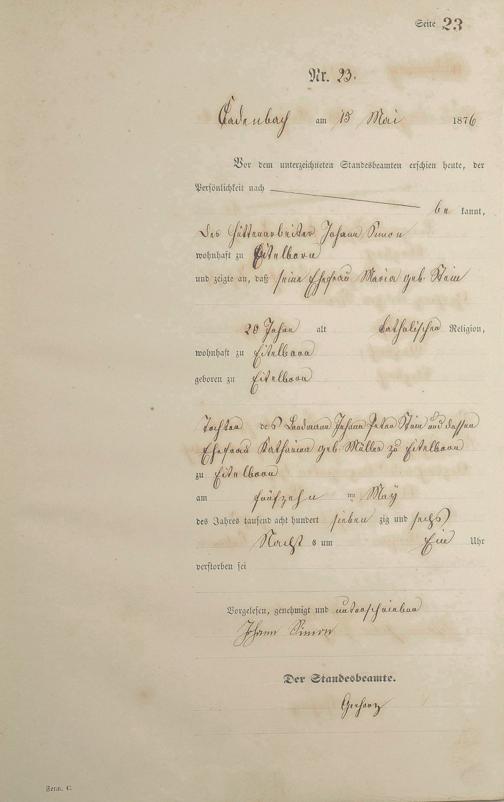 Seite 23
Nr. 23.
Cadenbach am 15 Mai 1876
Vor dem unterzeichneten Standesbeamten erschien heute, der
Persönlichkeit nach
be kannt,
der Hüttenarbeiter Johann Simon
wohnhaft zu Eitelborn
und zeigte an, daß seine Ehefrau Maria geb Stein
20 Jahre alt katholischer Religion,
wohnhaft zu Eitelborn
geboren zu Eitelborn
Tochter des Landmann Johann Peter Stein und dessen
Ehefrau Katharina geb Müller zu Eitelborn
zu Eitelborn
am fünfzehn ten May
des Jahres tausend acht hundert sieben zig und sechs
Nacht s um Ein Uhr
verstorben sei
Vorgelesen, genehmigt und unterschrieben
Johann Simon
Der Standesbeamte.
Form. C.